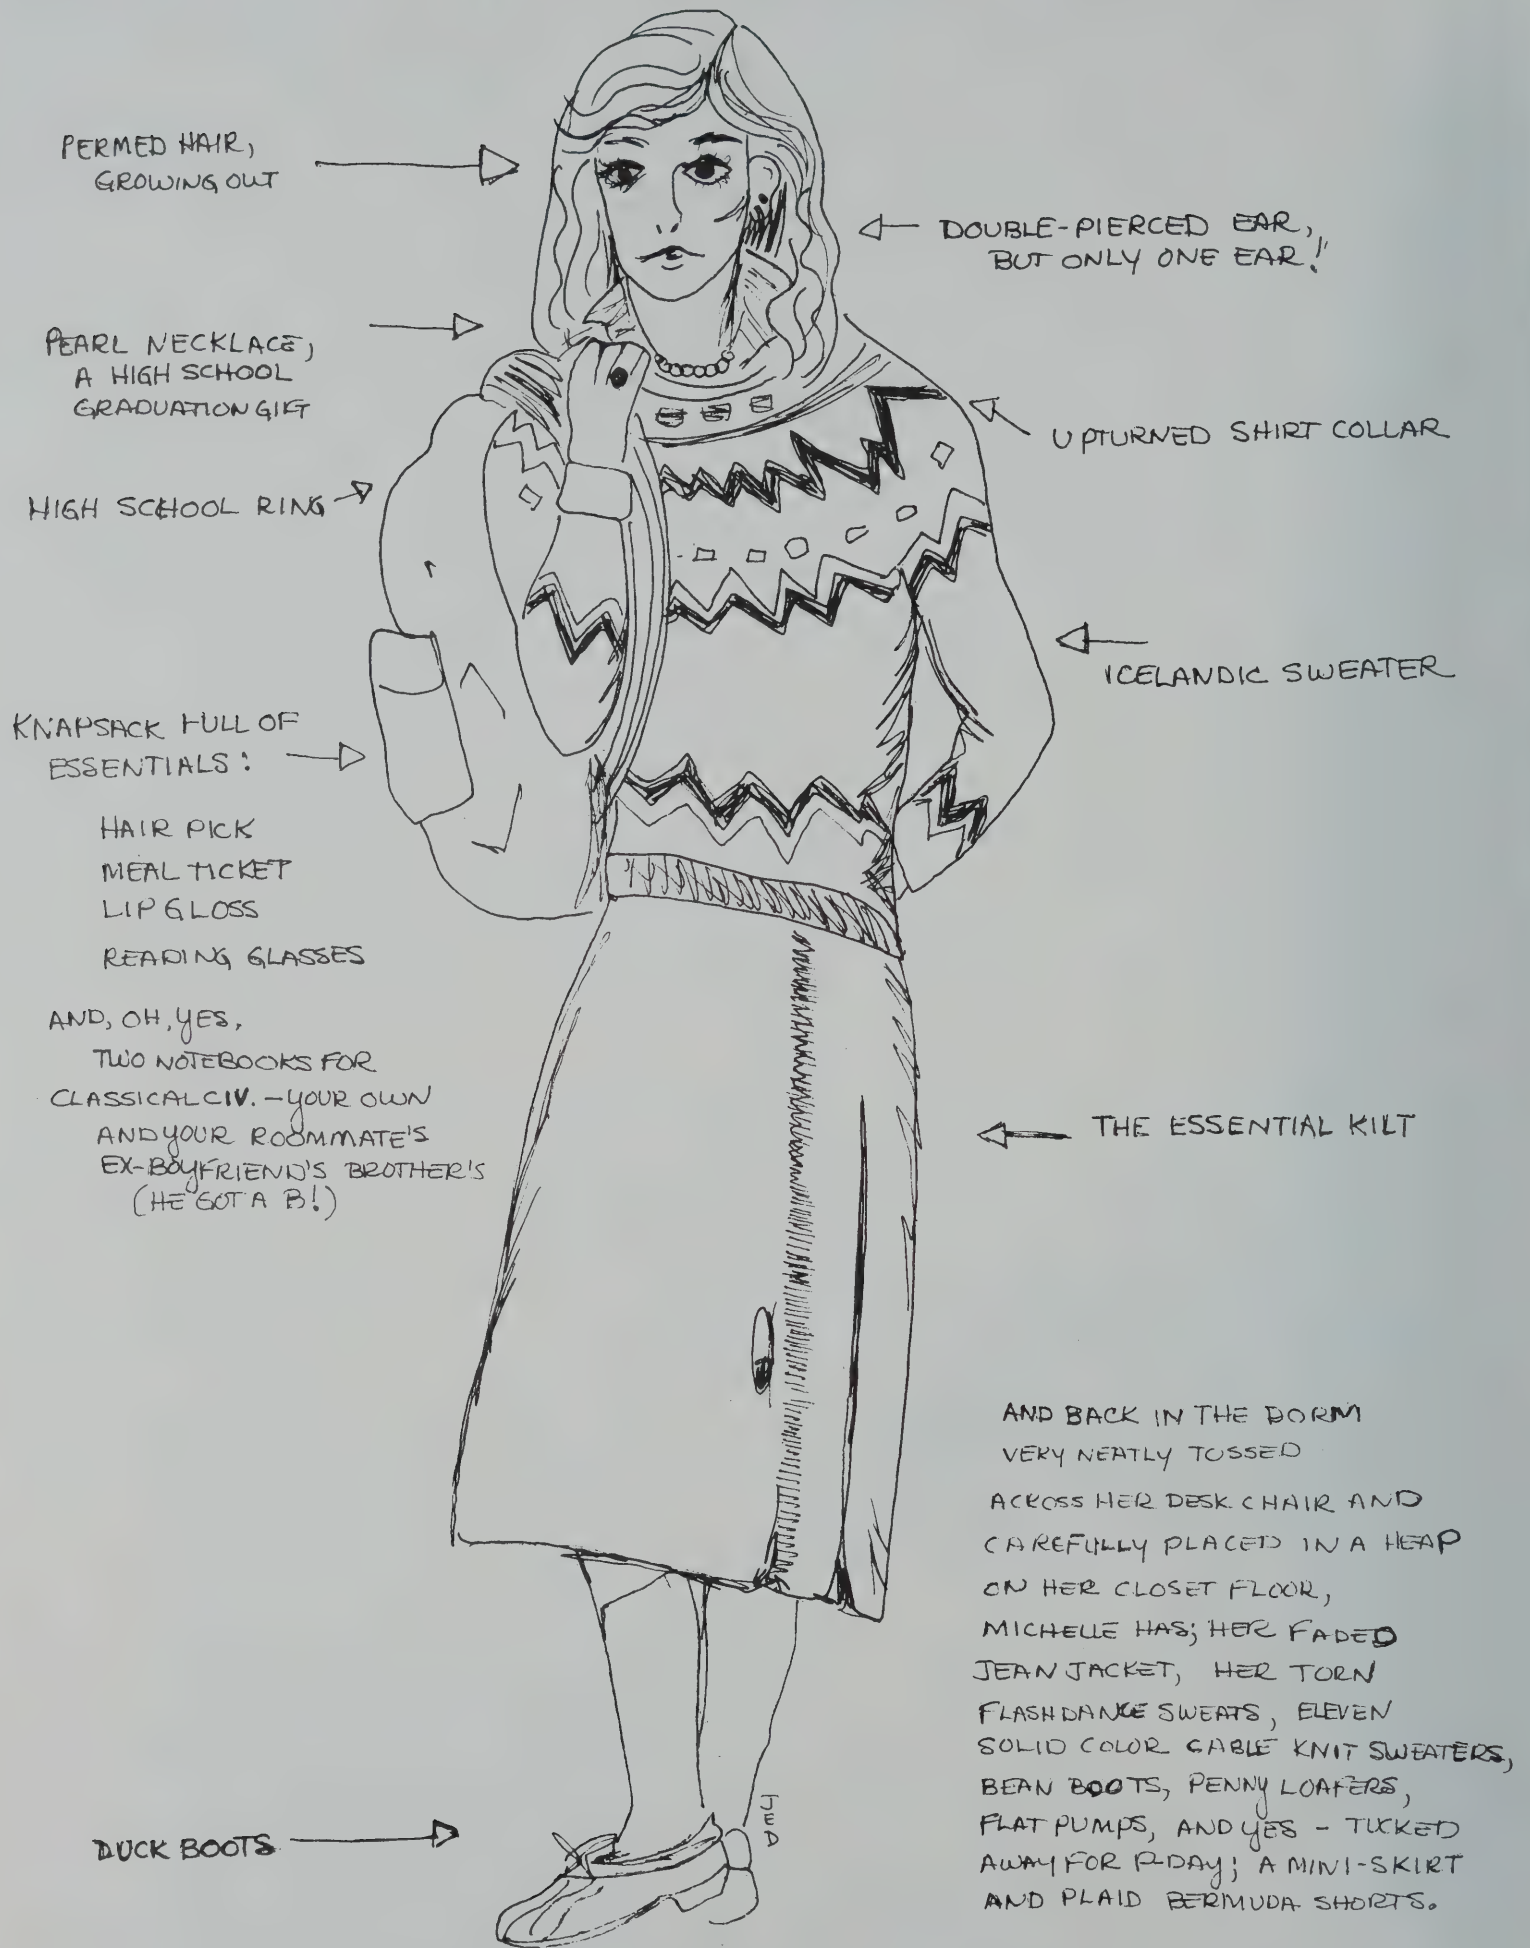 PERMED HAIR,
GROWING OUT
DOUBLE-PIERCED EAR,
BUT ONLY ONE EAR!
PEARL NECKLACE,
A HIGH SCHOOL
GRADUATION GIFT
UPTURNED SHIRT COLLAR
HIGH SCHOOL RING
ICELANDIC SWEATER
KNAPSACK FULL OF
ESSENTIALS:
HAIR PICK
MEAL TICKET
LIP GLOSS
READING GLASSES
AND, OH, YES,
TWO NOTEBOOKS FOR
CLASSICAL CIV. - YOUR OWN
AND YOUR ROOMMATE'S
EX-BOYFRIEND'S BROTHER'S
(HE GOT A B!)
THE ESSENTIAL KILT
AND BACK IN THE DORM
VERY NEATLY TOSSED
ACROSS HER DESK CHAIR AND
CAREFULLY PLACED IN A HEAP
ON HER CLOSET FLOOR,
MICHELLE HAS; HER FADED
JEAN JACKET, HER TORN
FLASHDANCE SWEATS, ELEVEN
SOLID COLOR CABLE KNIT SWEATERS,
BEAN BOOTS, PENNY LOAFERS,
FLAT PUMPS, AND YES - TUCKED
AWAY FOR P-DAY; A MINI-SKIRT
AND PLAID BERMUDA SHORTS.
DUCK BOOTS